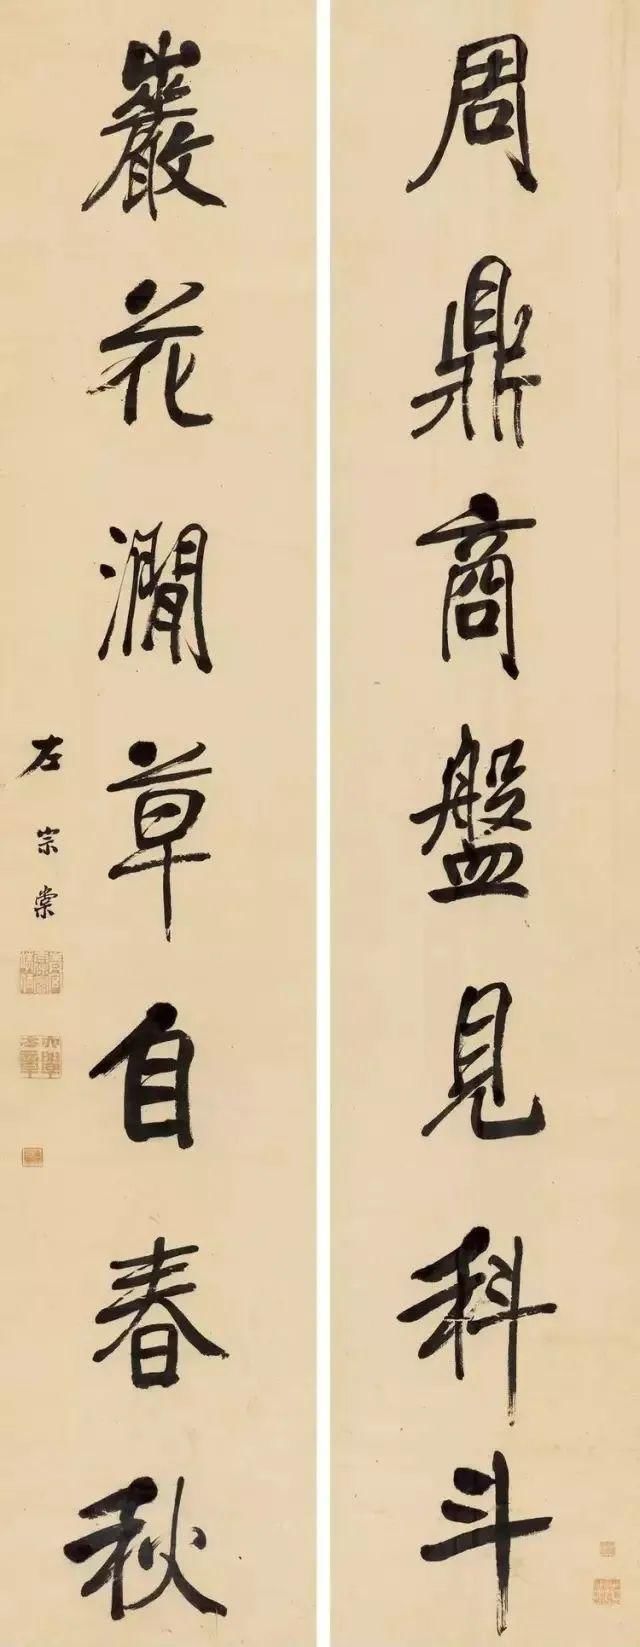 周鼎商盤見科斗
巖花澗草自春秋
左宗棠